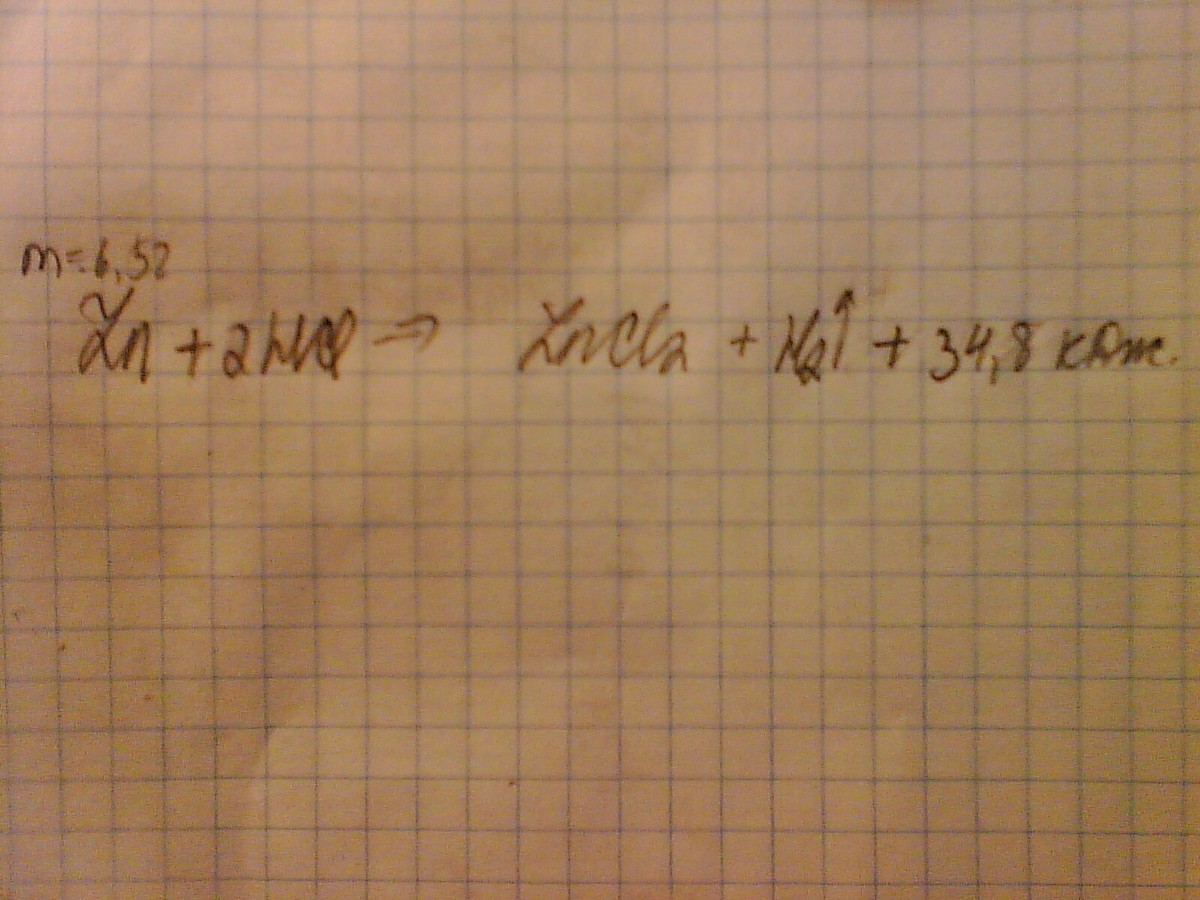 m=6,5г
Zn + 2HCl => ZnCl2 + H2↑ + 34,8 кДж.